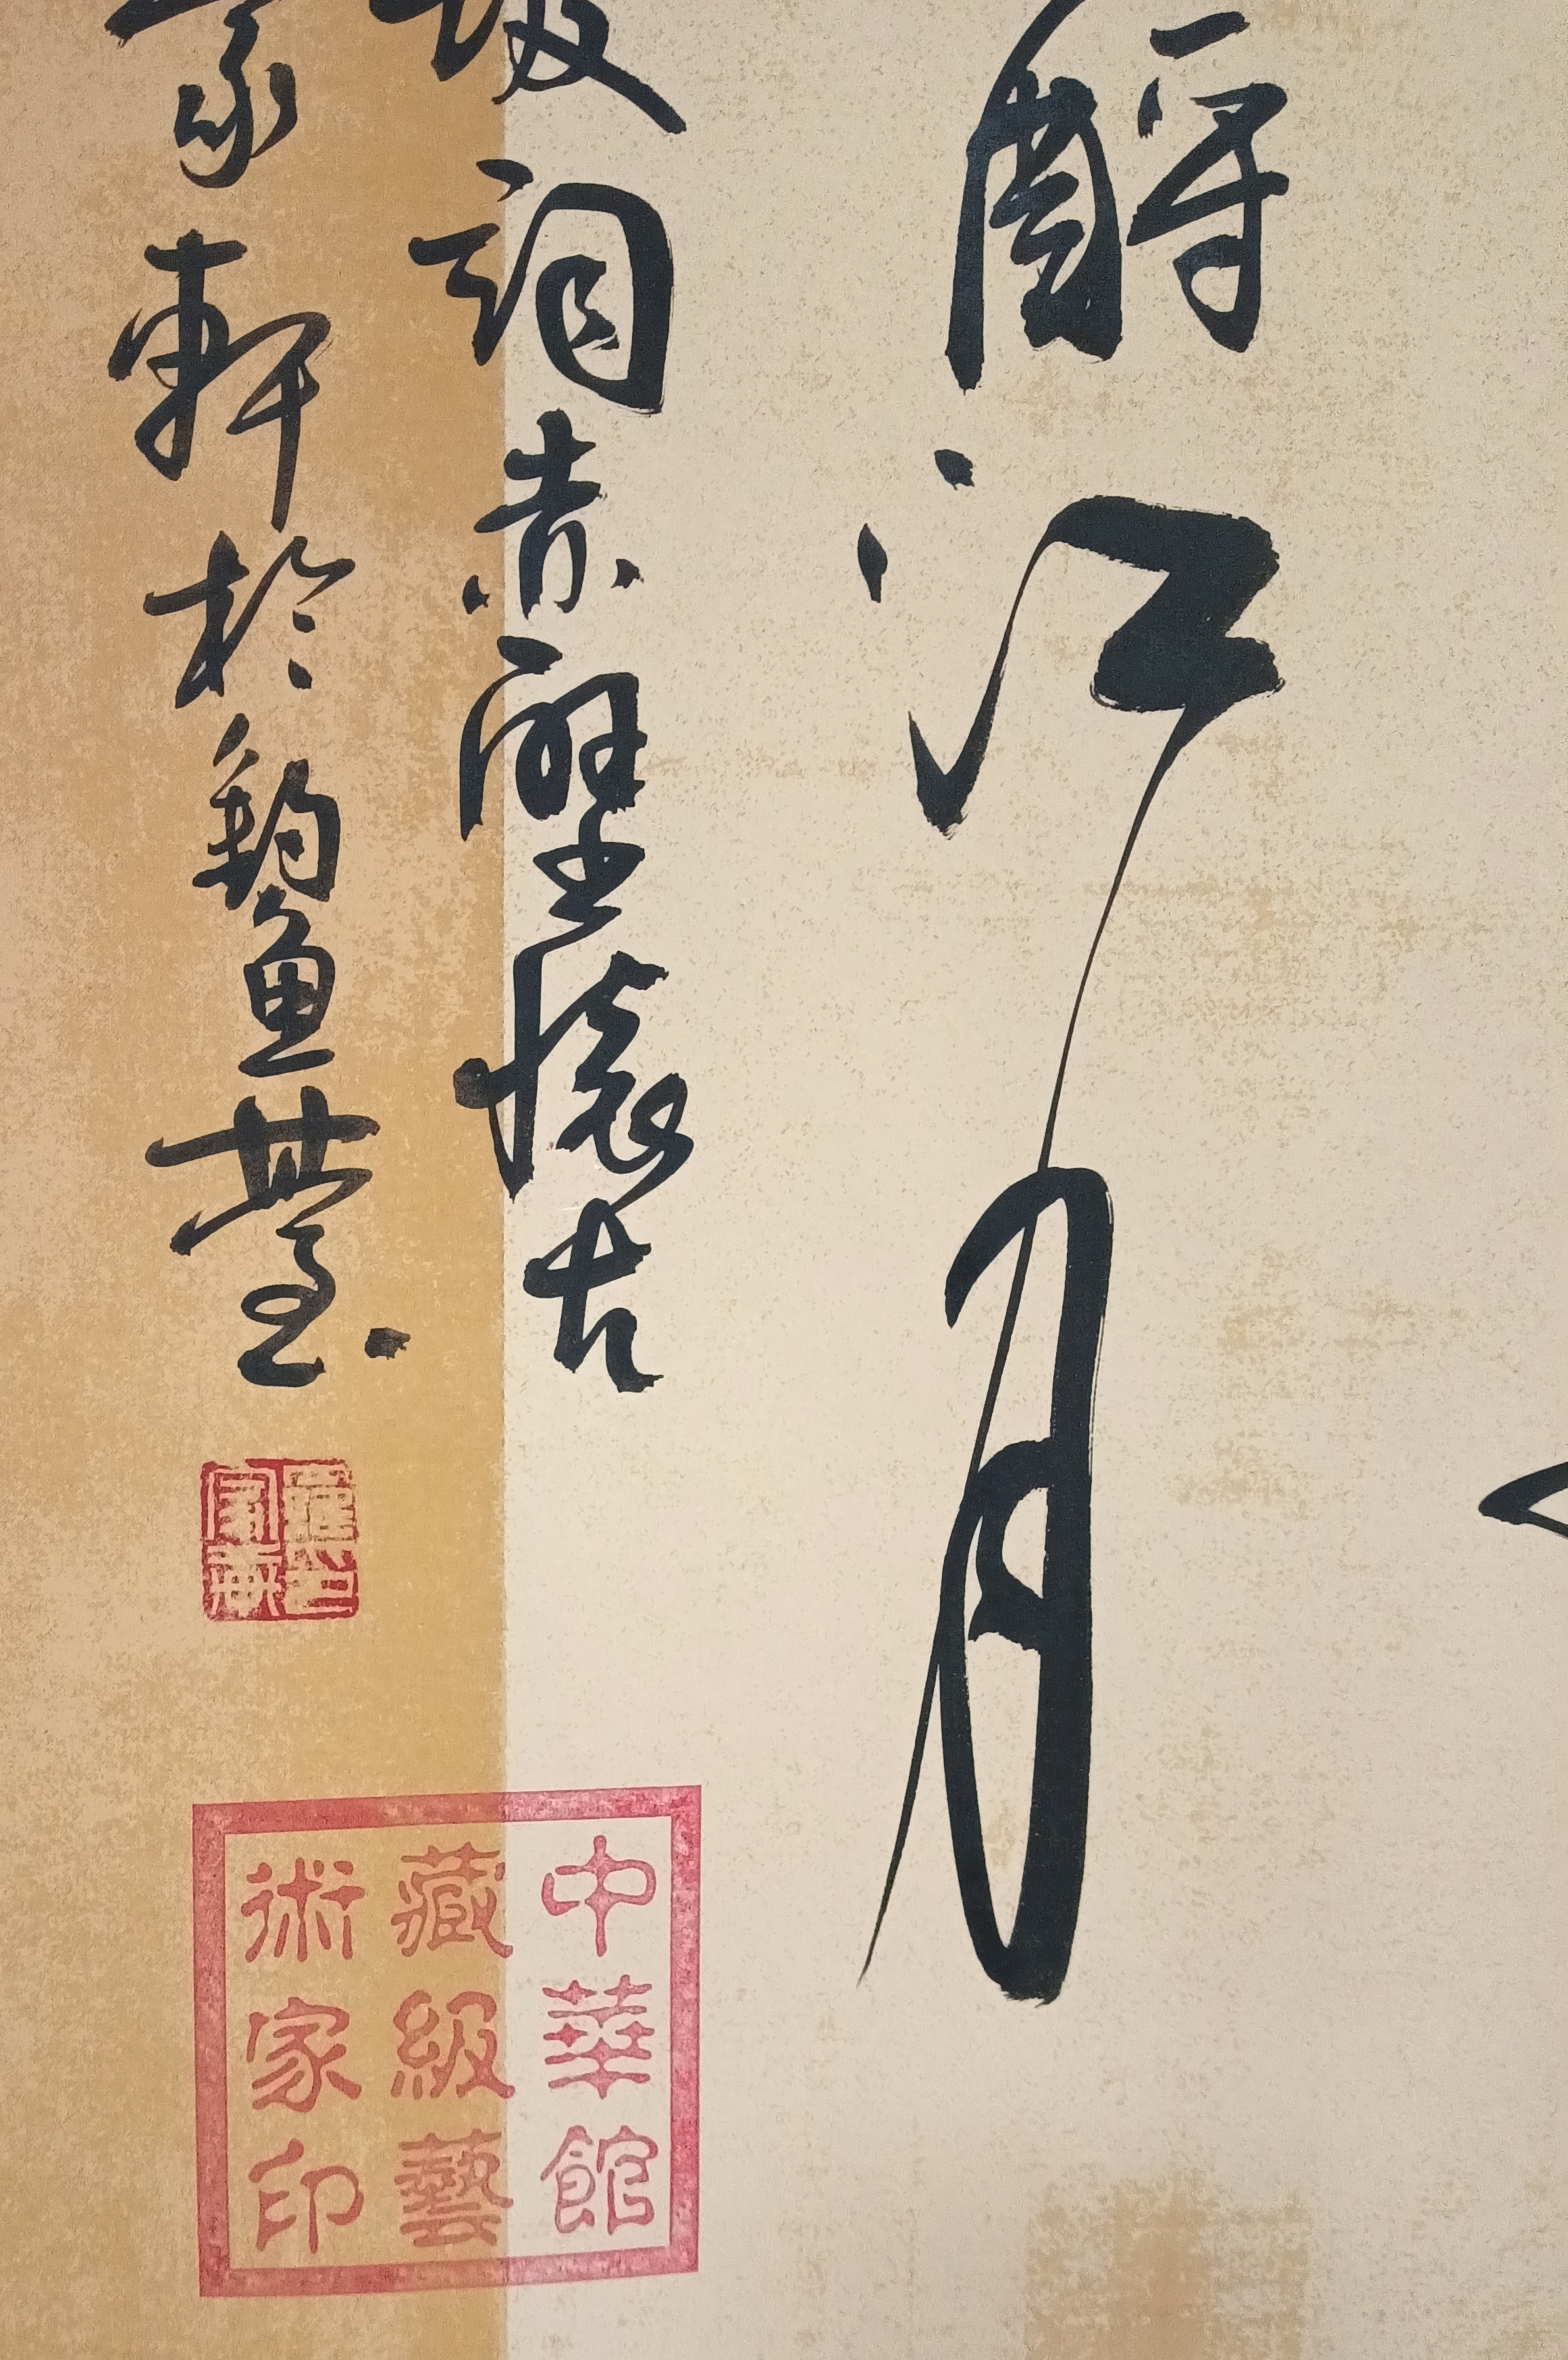 酹江月
坡词赤壁懷古
軒於釣魚臺
中華館
藏級藝
術家印